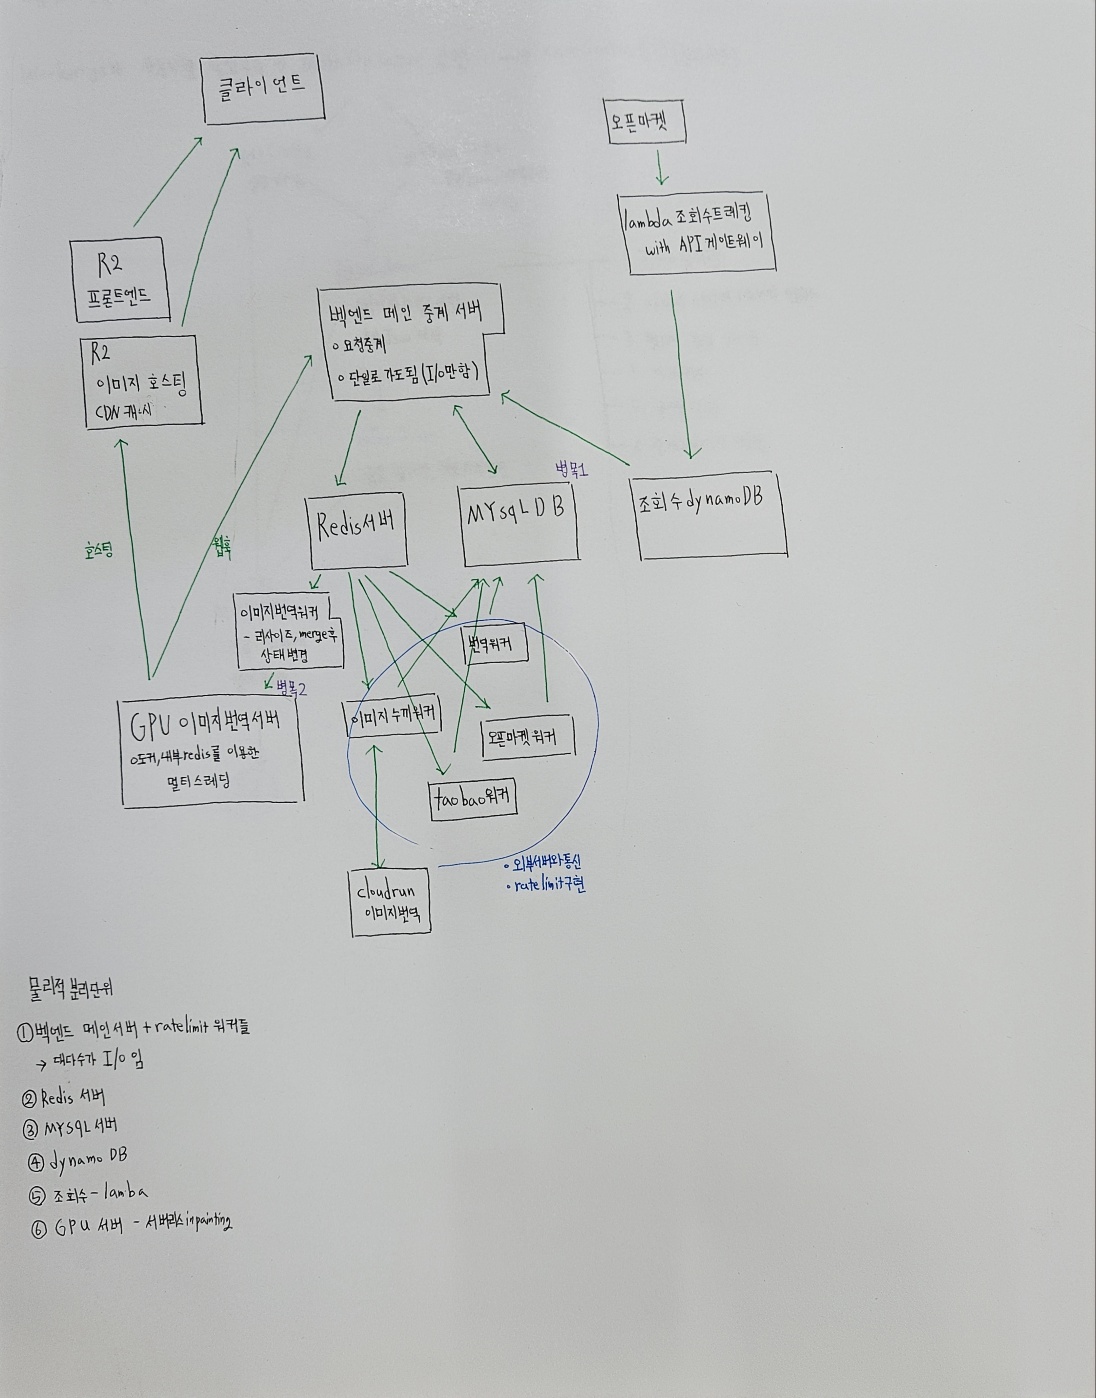 클라이언트
오픈마켓
lambda 조회수트레킹
with API 게이트웨이
R2
프론트엔드
R2
이미지 호스팅
CDN 캐시
벡엔드 메인 중계 서버
o 요청중계
o 단일로 가도됨 (I/O만함)
병목1
Redis서버
MYsqL DB
조회수 dynamoDB
호스팅
웹훅
이미지번역워커
- 리사이즈, merge후
상태변경
번역워커
병목2
GPU 이미지번역서버
o도커, 내부redis를 이용한
멀티스레딩
이미지 누끼워커
오픈마켓 워커
taobao워커
cloudrun
이미지번역
• 외부서버와통신
• ratelimit구현
물리적 분리단위
① 벡엔드 메인서버 + ratelimit 워커들
→ 대다수가 I/O 임
② Redis 서버
③ MYSQL 서버
④ dynamo DB
⑤ 조회수 - lamba
⑥ GPU 서버 - 서버리스 inpainting